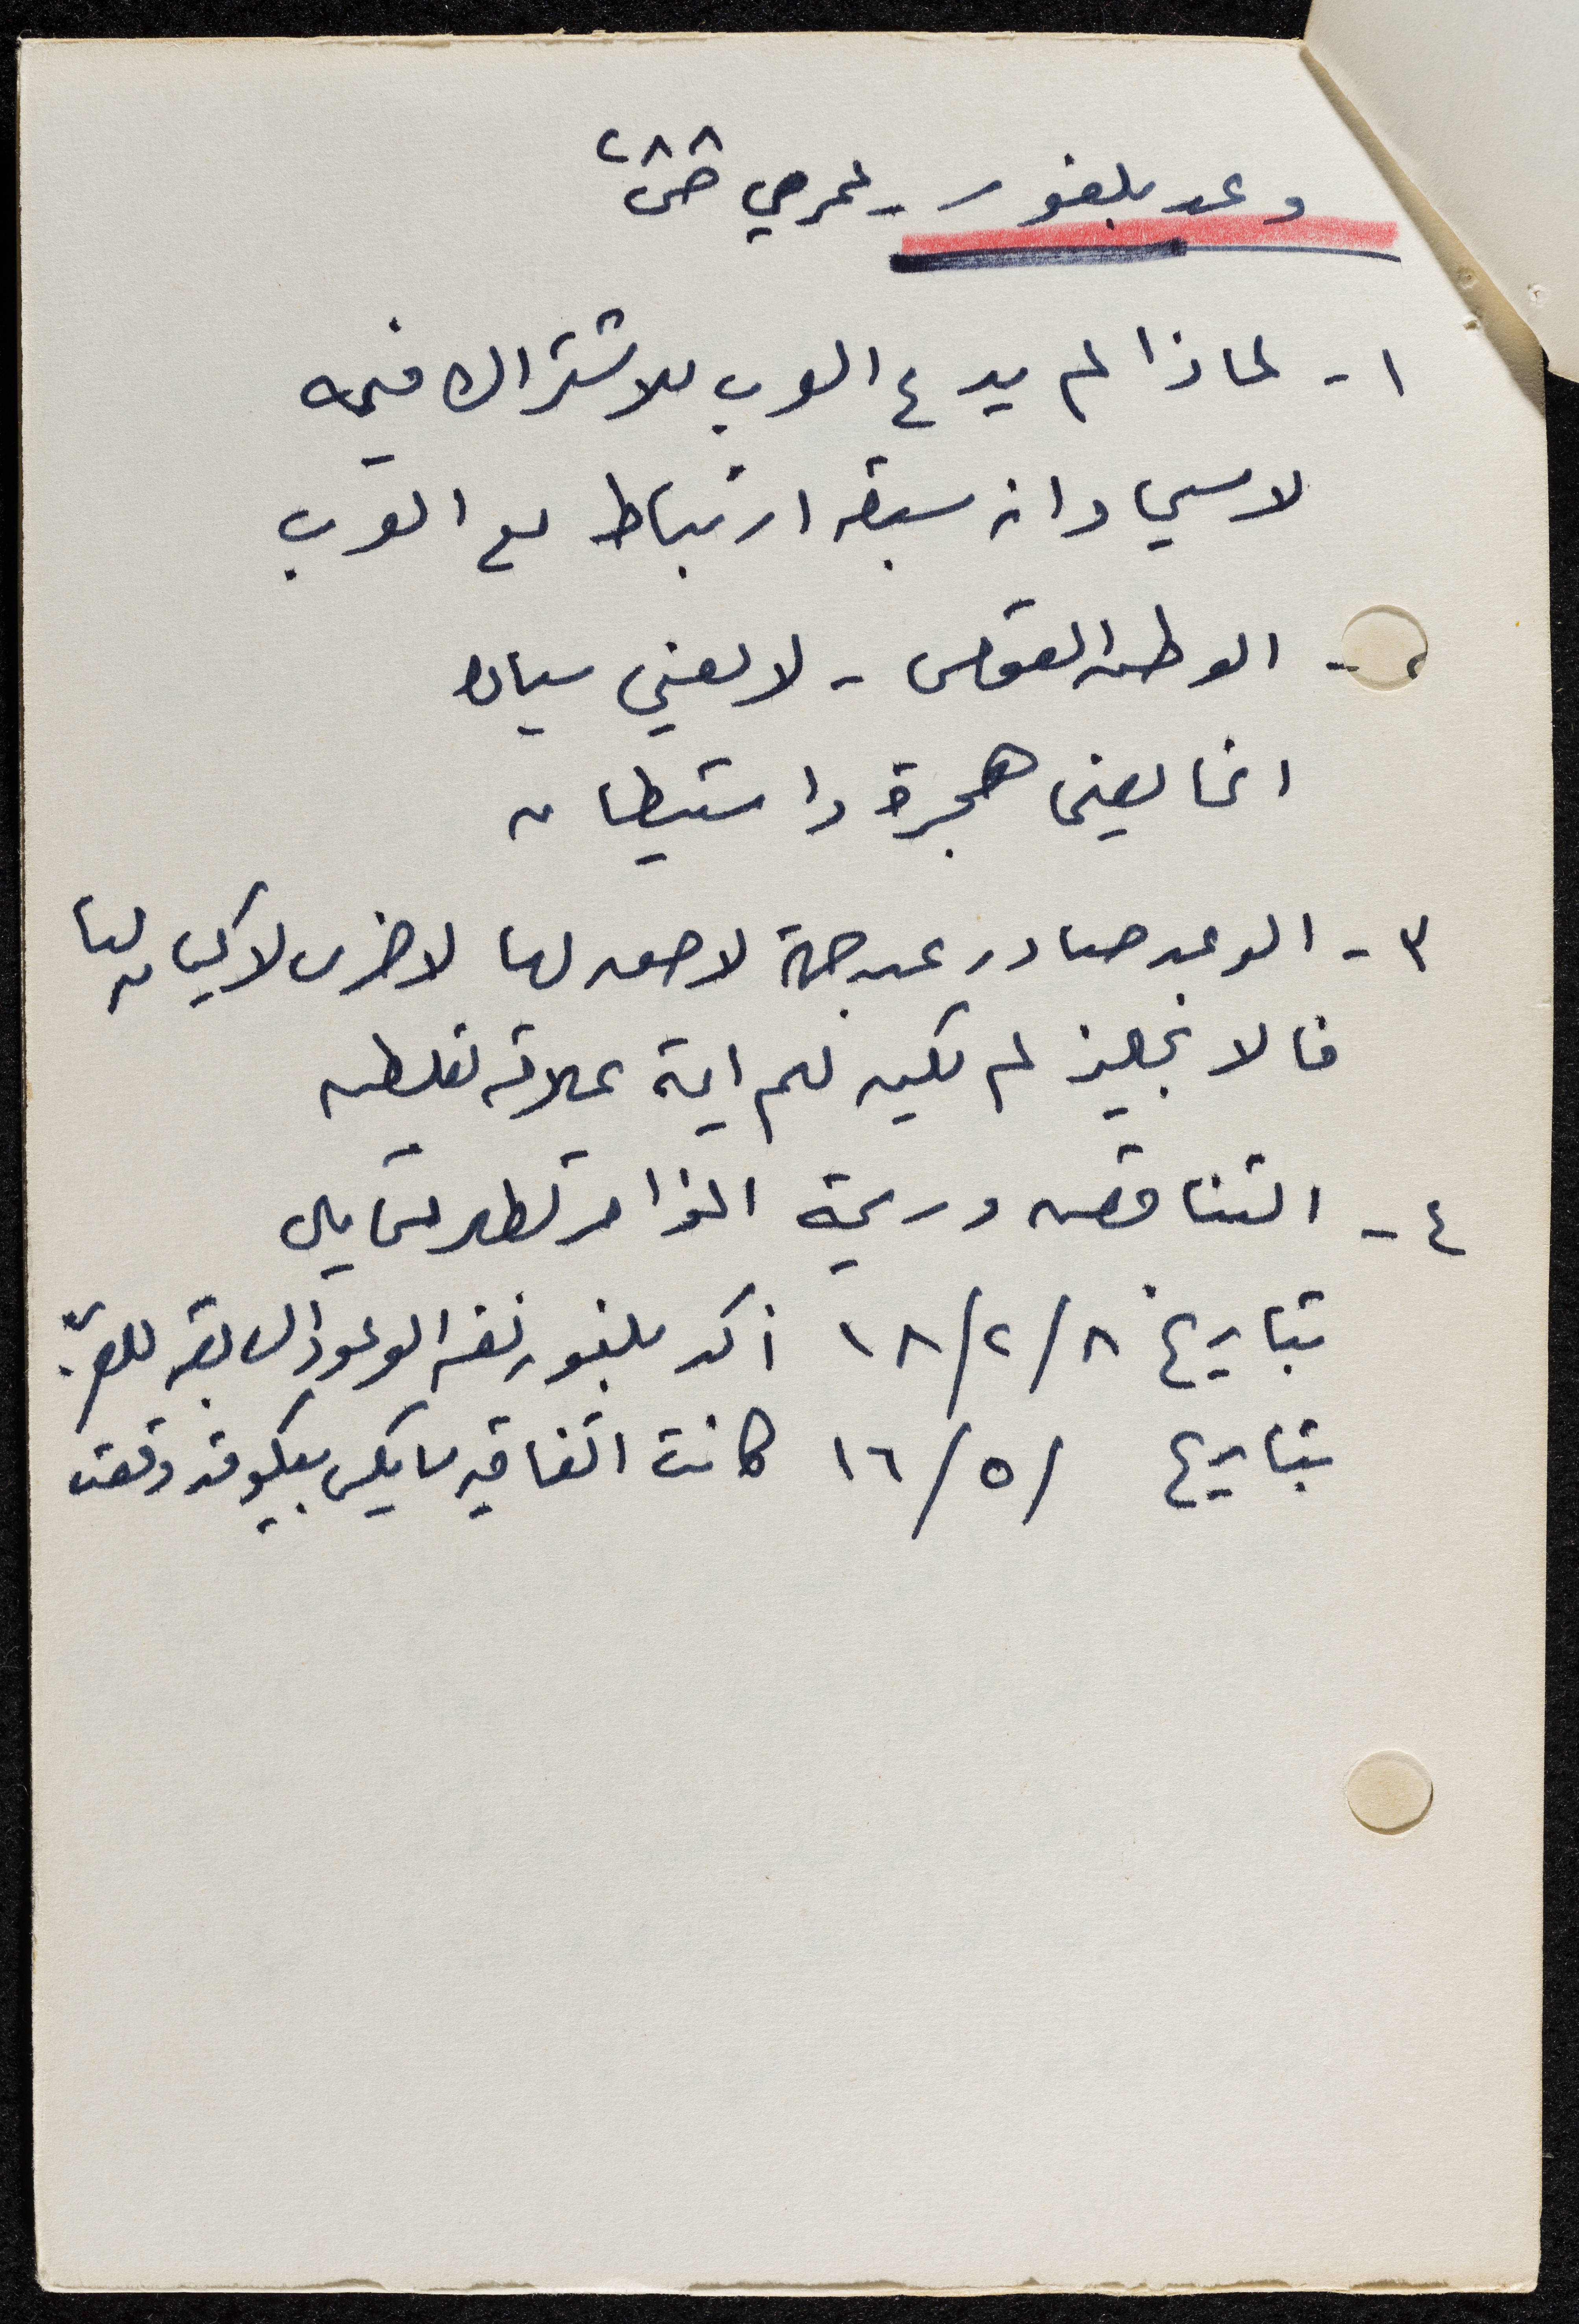 وعد بلفور - عمر ص ٢٨٨
١- لماذا لم يدع العرب للاشتراك فيه
لا سيما وانه سبق ارتباط مع العرب
٢- الوطن القومي - لا يعني سيادة
انما يعني هجرة واستيطان
٣- الوعد صادر عن جهة لا حق لها لاخرى لا كيان لها
فالانجليز لم تكن لهم اية علاقة بفلسطين
٤- التناقض وريحة المؤامرة تظهر مما يلي
بتاريخ ١٨/٢/٨ أكد بلفور نفس الوعود السابقة للعرب
بتاريخ /١٦/٥ كانت اتفاقية سايكس بيكو قد وقعت